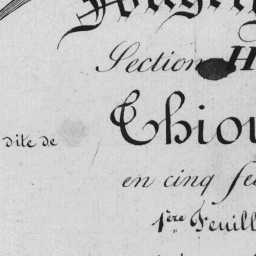 Section H
dite de Thiou
en cinq feu
1ère Feuill